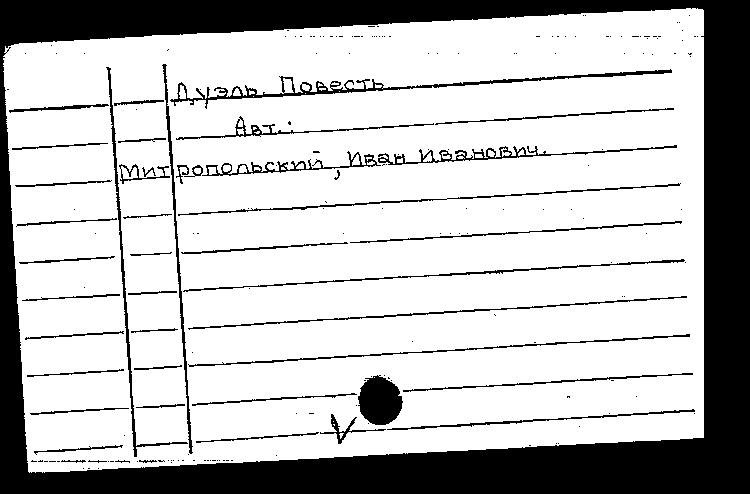 Дуэль. Повесть
Авт.:
Митропольский, Иван Иванович.